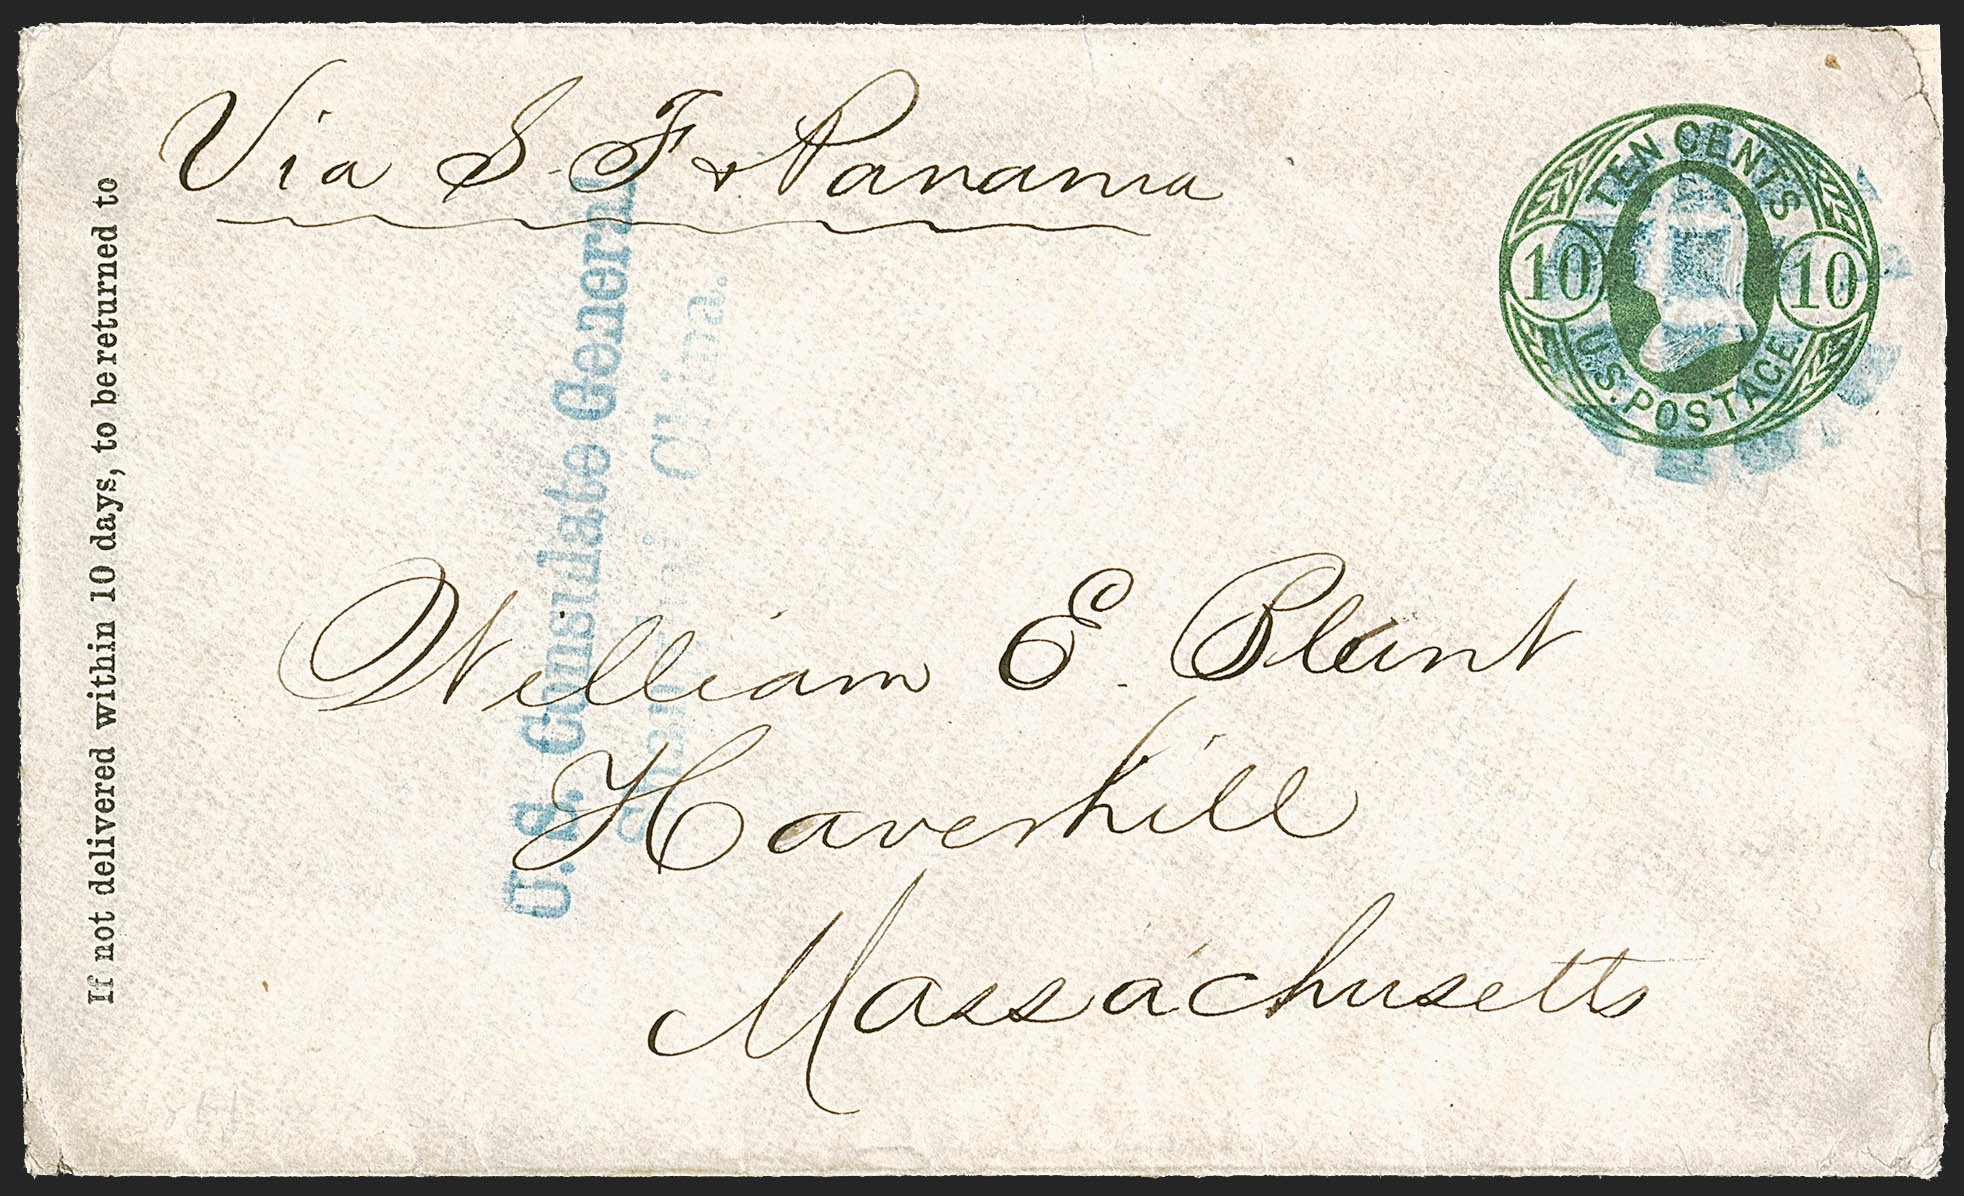 Via S. F & Panama
TEN CENTS
10 10
U.S. POSTAGE.
If not delivered within 10 days, to be returned to
U.S. Consulate General
Shanghai China.
William E. Blunt
Haverhill
Massachusetts